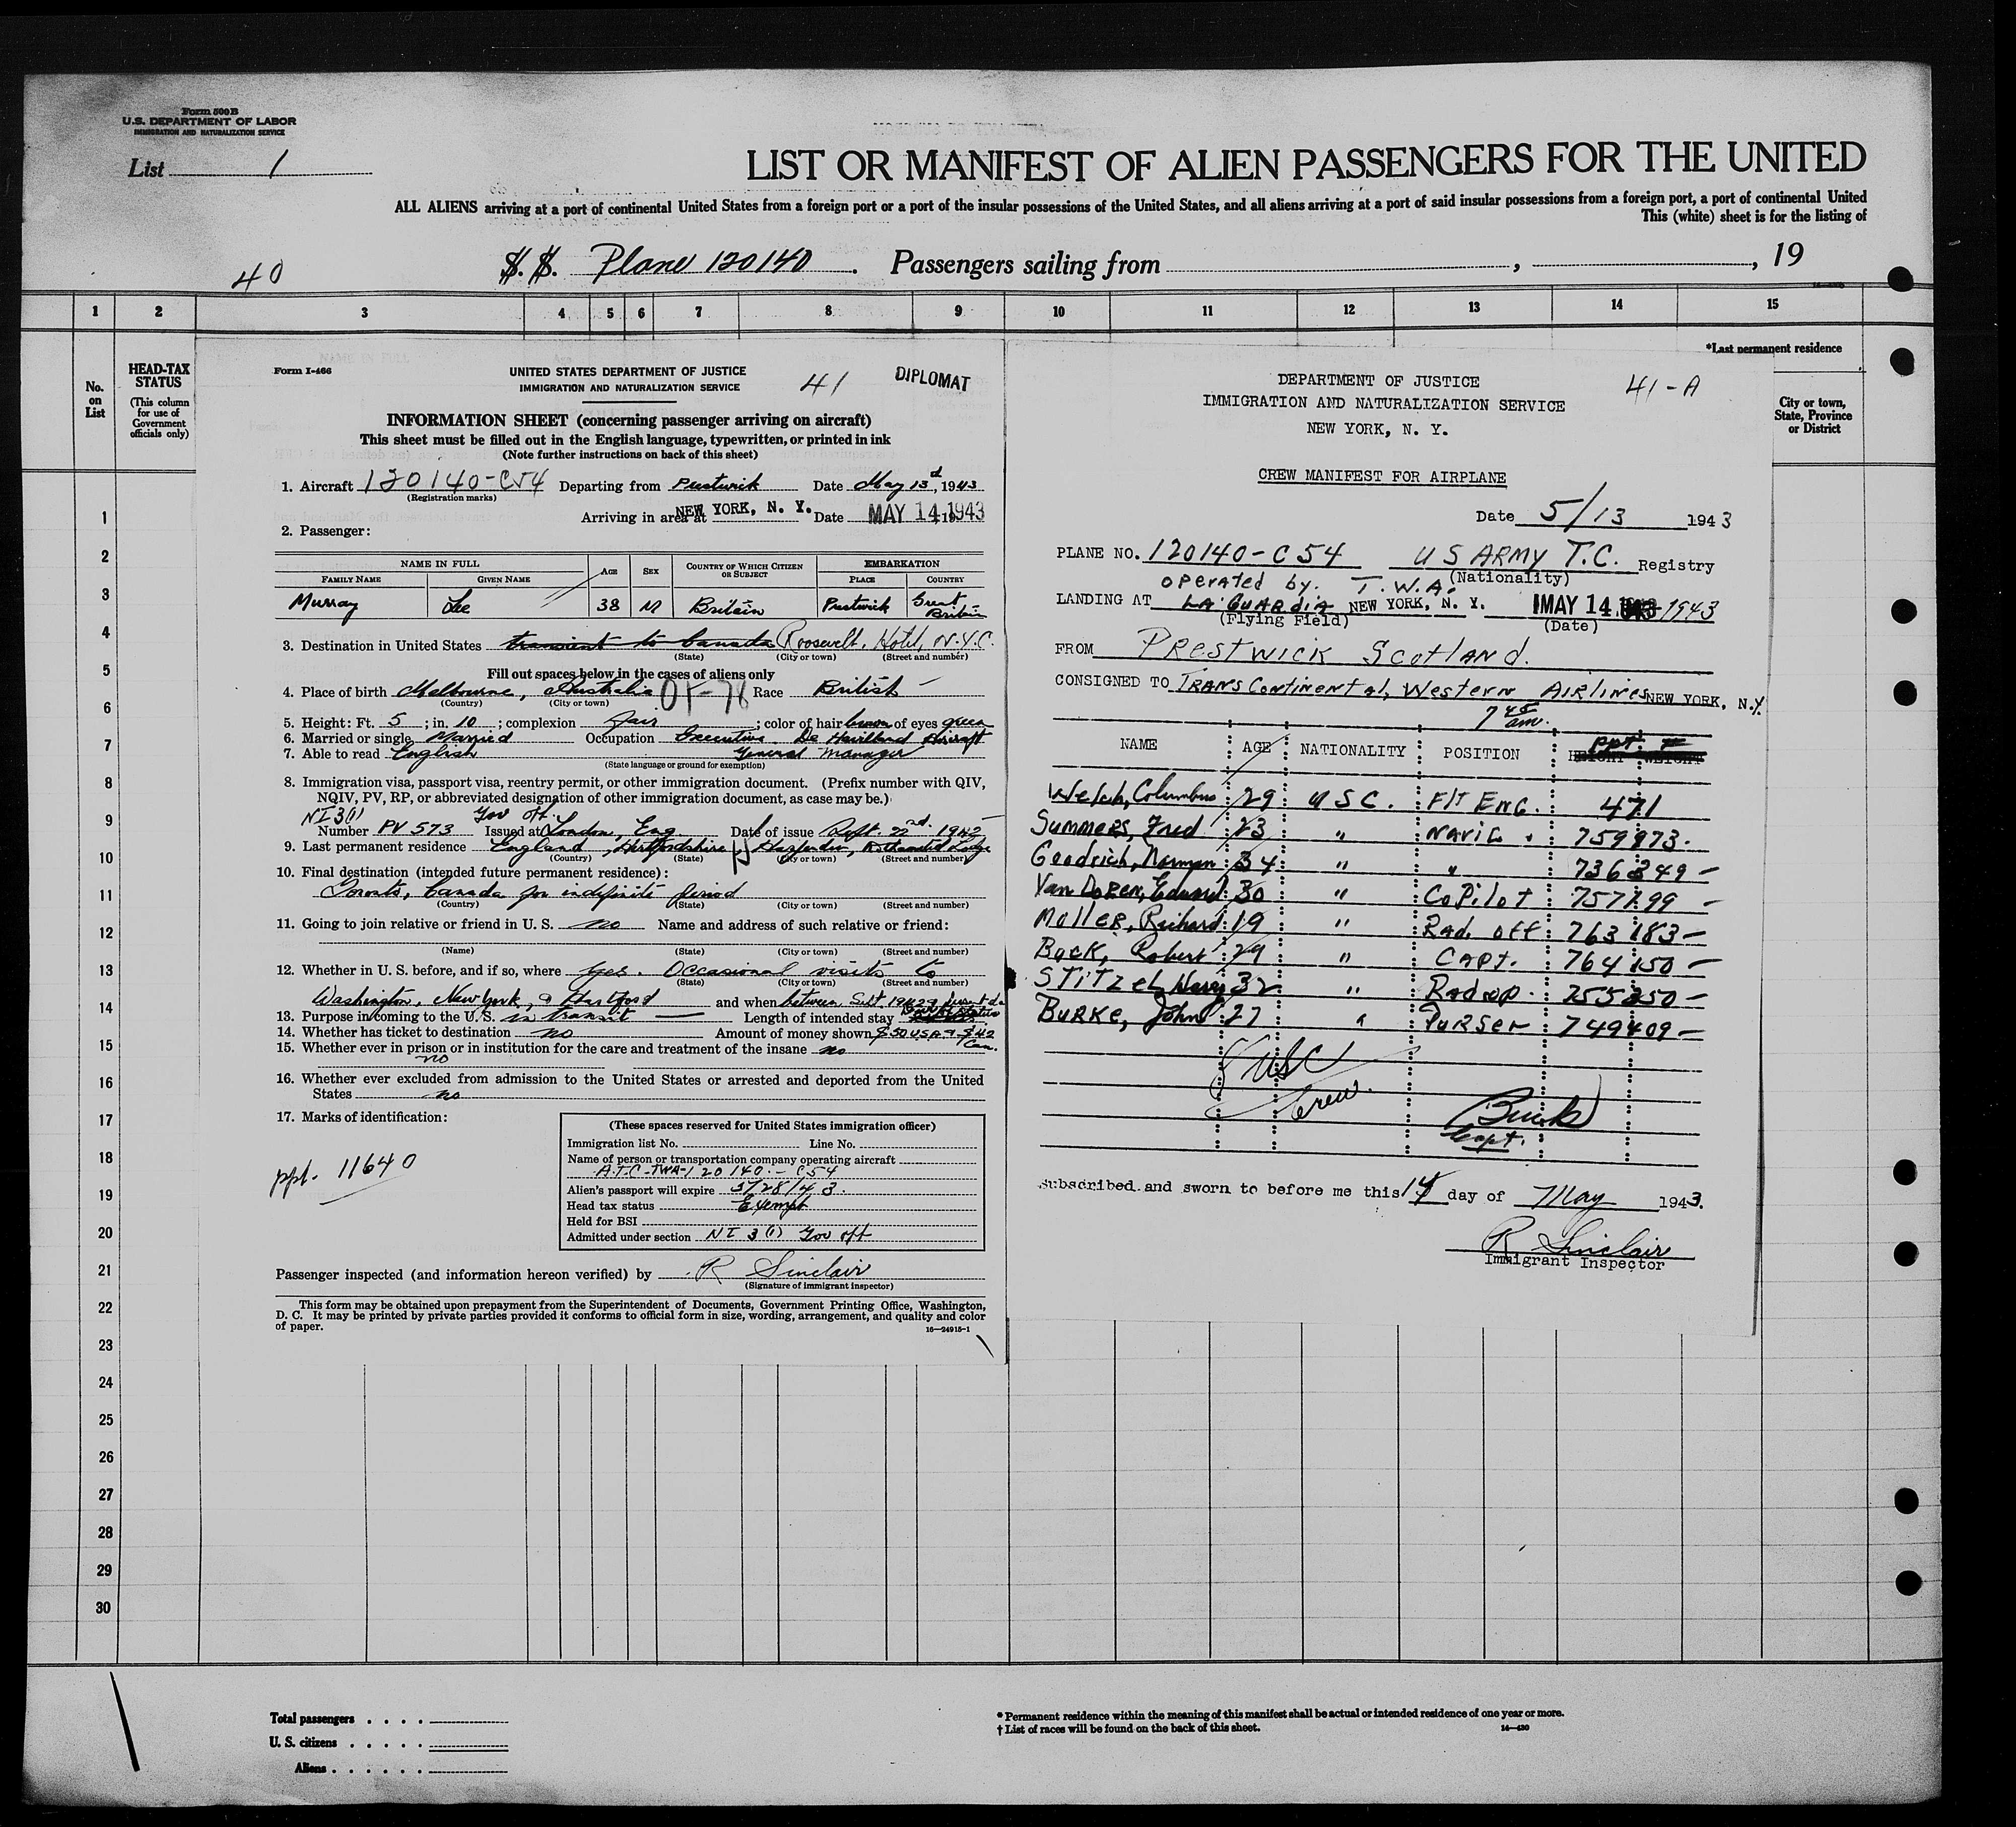 Form 500B
U.S. DEPARTMENT OF LABOR
IMMIGRATION AND NATURALIZATION SERVICE
List 1
LIST OR MANIFEST OF ALIEN PASSENGERS FOR THE UNITED
ALL ALIENS arriving at a port of continental United States from a foreign port or a port of the insular possessions of the United States, and all aliens arriving at a port of said insular possessions from a foreign port, a port of continental United
This (white) sheet is for the listing of
40
S. S. Plane 120140. Passengers sailing from , , 19
1 2 3 4 5 6 7 8 9 10 11 12 13 14 15
No. on List
HEAD-TAX STATUS
(This column for use of Government officials only)
*Last permanent residence
City or town, State, Province or District
1
2
3
4
5
6
7
8
9
10
11
12
13
14
15
16
17
18
19
20
21
22
23
24
25
26
27
28
29
30
Form I-466
UNITED STATES DEPARTMENT OF JUSTICE
IMMIGRATION AND NATURALIZATION SERVICE
41
DIPLOMAT
INFORMATION SHEET (concerning passenger arriving on aircraft)
This sheet must be filled out in the English language, typewritten, or printed in ink
(Note further instructions on back of this sheet)
1. Aircraft 120140-C54 Departing from Prestwick Date May 13th, 1943
(Registration marks)
Arriving in area at NEW YORK, N. Y. Date MAY 14 1943
2. Passenger:
NAME IN FULL AGE SEX COUNTRY OF WHICH CITIZEN OR SUBJECT EMBARKATION
FAMILY NAME GIVEN NAME PLACE COUNTRY
Murray Lee 38 M Britain Prestwick Great Britain
3. Destination in United States transient to Canada Roosevelt. Hotel, N.Y.C.
(State) (City or town) (Street and number)
Fill out spaces below in the cases of aliens only
4. Place of birth Melbourne, Australia Race British
(Country) (City or town)
5. Height: Ft. 5; in. 10; complexion fair; color of hair brown of eyes green
6. Married or single Married Occupation Executive De Havilland Aircraft
7. Able to read English General Manager
(State language or ground for exemption)
8. Immigration visa, passport visa, reentry permit, or other immigration document. (Prefix number with QIV,
NQIV, PV, RP, or abbreviated designation of other immigration document, as case may be.)
NI 3(1) Gov off.
Number PV 573 Issued at London, Eng. Date of issue Sept. 22nd. 1942
9. Last permanent residence England, Hertfordshire, Harpenden, Rothamsted Lodge
(Country) (State) (City or town) (Street and number)
10. Final destination (intended future permanent residence):
Toronto, Canada for indefinite period
(Country) (State) (City or town) (Street and number)
11. Going to join relative or friend in U. S. no Name and address of such relative or friend:
(Name) (State) (City or town) (Street and number)
12. Whether in U. S. before, and if so, where Yes. Occasional visits to
(State) (City or town) (Street and number)
Washington, New York, & Hartford and when between Sept 1942 &
13. Purpose in coming to the U. S. in transit Length of intended stay
14. Whether has ticket to destination no Amount of money shown $50 U.S.A. & $42 Can.
15. Whether ever in prison or in institution for the care and treatment of the insane no
no
16. Whether ever excluded from admission to the United States or arrested and deported from the United
States no
17. Marks of identification:
ppt. 11640
(These spaces reserved for United States immigration officer)
Immigration list No. Line No.
Name of person or transportation company operating aircraft
A.T.C-TWA-120140-C54
Alien's passport will expire 5/28/43.
Head tax status Exempt
Held for BSI
Admitted under section NI 3(1) Gov off
Passenger inspected (and information hereon verified) by R Sinclair
(Signature of immigrant inspector)
This form may be obtained upon prepayment from the Superintendent of Documents, Government Printing Office, Washington,
D. C. It may be printed by private parties provided it conforms to official form in size, wording, arrangement, and quality and color
of paper.
16—24915-1
DEPARTMENT OF JUSTICE
IMMIGRATION AND NATURALIZATION SERVICE
NEW YORK, N. Y.
41-A
CREW MANIFEST FOR AIRPLANE
Date 5/13 1943
PLANE NO. 120140-C54 US ARMY T.C. Registry
(Nationality)
operated by. T.W.A.
LANDING AT LA GUARDIA NEW YORK, N. Y. MAY 14 1943
(Flying Field) (Date)
FROM PRESTWICK SCOTLAND.
CONSIGNED TO TRANSContinental, Western AIRLINES NEW YORK, N.Y.
7 45 am.
NAME AGE NATIONALITY POSITION ppt. #
Welch, Columbus 29 USC. FlT ENG. 471
Summers, Fred 23 " NAVIG. 759873.
Goodrich, Norman 34 " " 736349
Van Doren, Edward 30 " CoPilot 757199
Moller, Richard 19 " Rad. off 763183
Buck, Robert 29 " CAPT. 764150
STITZel, Harry 32 " Rad op. 755350
BURKE, John 27 " Purser 749409
8 USC
Crew.
Buck
Capt.
Subscribed and sworn to before me this 14 day of May 1943.
R Sinclair
Immigrant Inspector
Total passengers
U. S. citizens
Aliens
* Permanent residence within the meaning of this manifest shall be actual or intended residence of one year or more.
† List of races will be found on the back of this sheet.
14—430